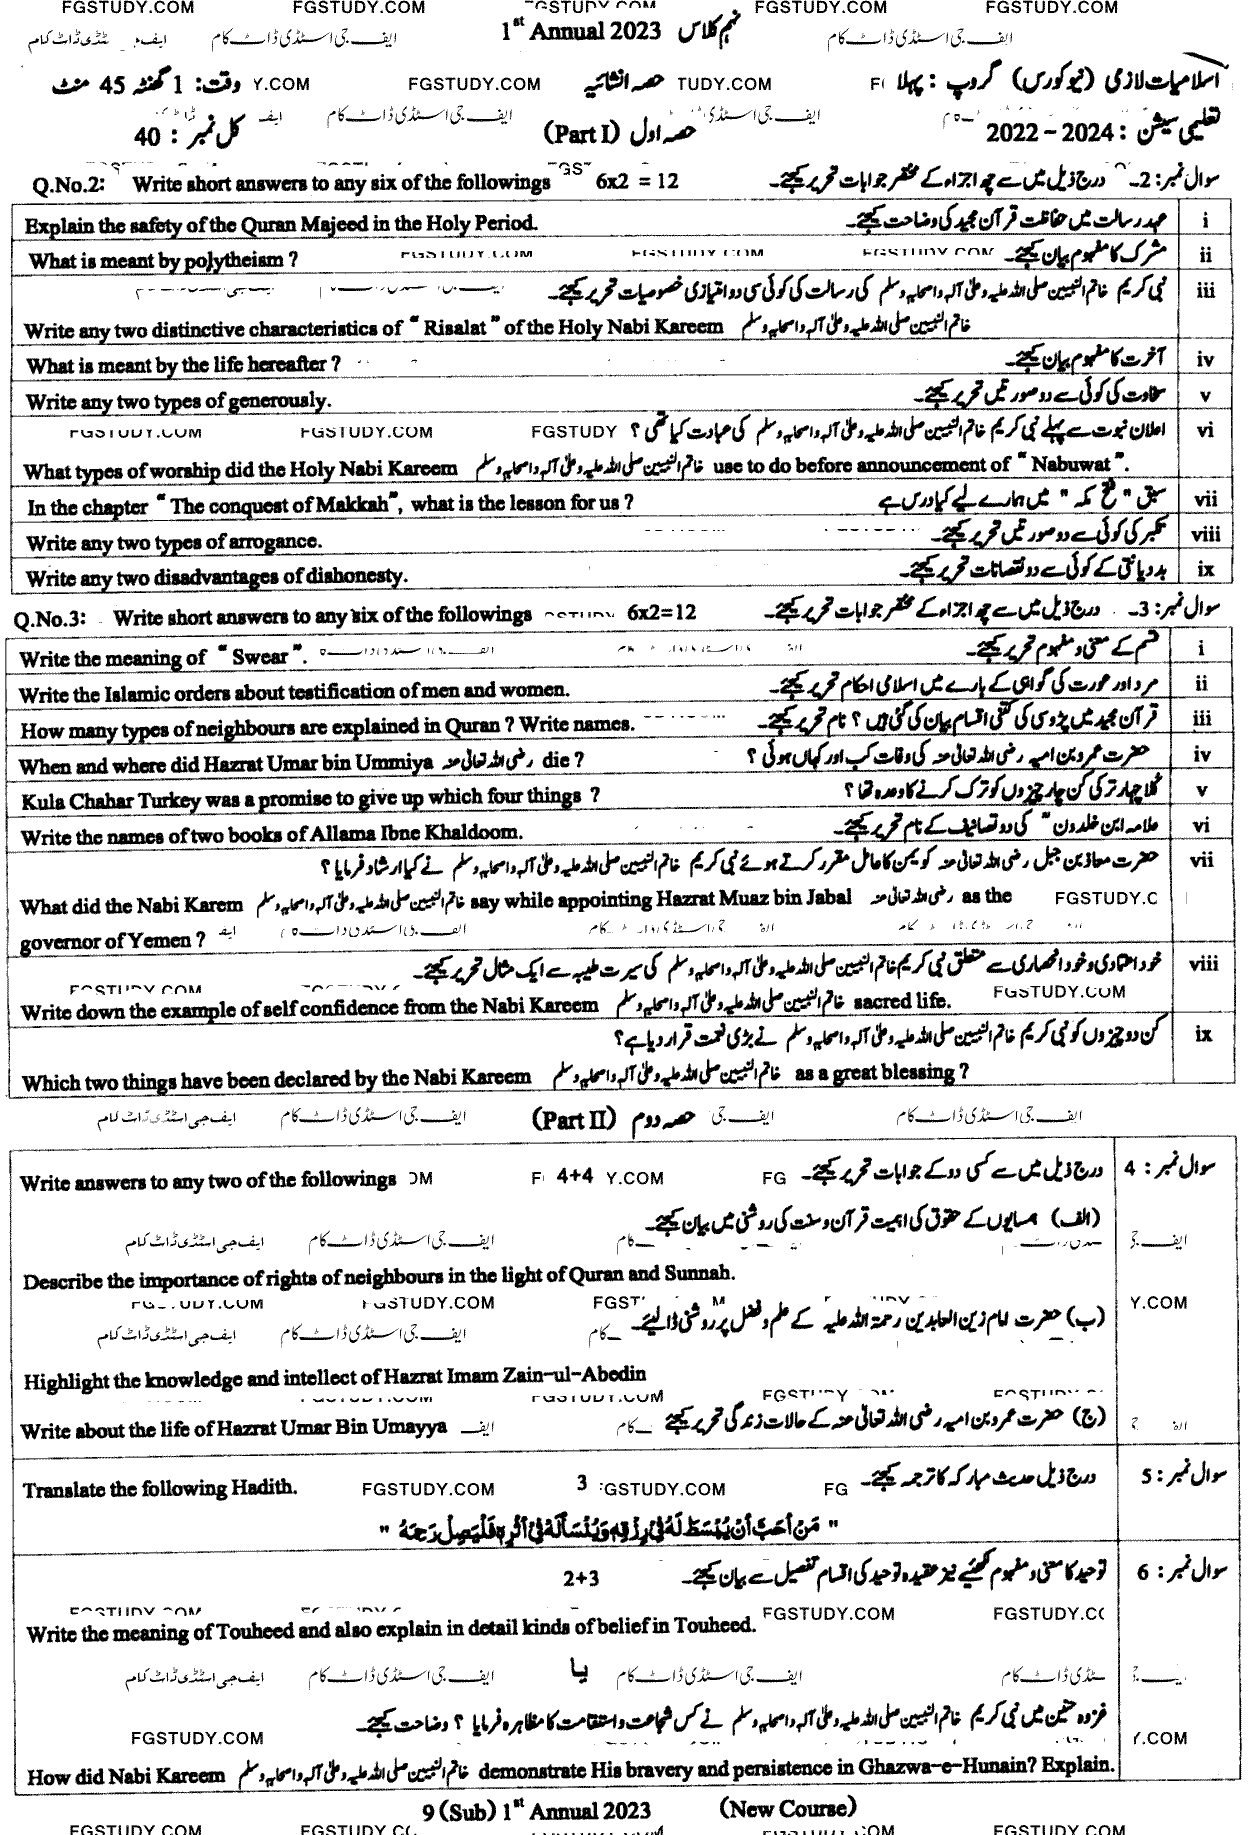 FGSTUDY.COM FGSTUDY.COM FGSTUDY.COM FGSTUDY.COM FGSTUDY.COM
1st Annual 2023 نہم کلاس
ایف جی اسٹڈی ڈاٹ کام ایف جی اسٹڈی ڈاٹ کام
اسلامیات لازمی (نیو کورس) گروپ : پہلا حصہ انشائیہ وقت: 1 گھنٹہ 45 منٹ
Y.COM FGSTUDY.COM TUDY.COM
ایف جی اسٹڈی ڈاٹ کام ایف جی اسٹڈی ڈاٹ کام
تعلیمی سیشن : 2024 - 2022 حصہ اول (Part I) کل نمبر : 40
سوال نمبر: 2۔ درج ذیل میں سے چھ اجزاء کے مختصر جوابات تحریر کیجئے۔
Q.No.2: Write short answers to any six of the followings 6x2 = 12
i عہد رسالت میں حفاظت قرآن مجید کی وضاحت کیجئے۔
Explain the safety of the Quran Majeed in the Holy Period.
ii شرک کا مفہوم بیان کیجئے۔
What is meant by polytheism ?
iii نبی کریم خاتم النبیین صلی اللہ علیہ وعلیٰ آلہ واصحابہ وسلم کی رسالت کی کوئی سی دو امتیازی خصوصیات تحریر کیجئے۔
Write any two distinctive characteristics of “ Risalat ” of the Holy Nabi Kareem خاتم النبیین صلی اللہ علیہ وعلیٰ آلہ واصحابہ وسلم
iv آخرت کا مفہوم بیان کیجئے۔
What is meant by the life hereafter ?
v سخاوت کی کوئی سے دو صورتیں تحریر کیجئے۔
Write any two types of generously.
vi اعلان نبوت سے پہلے نبی کریم خاتم النبیین صلی اللہ علیہ وعلیٰ آلہ واصحابہ وسلم کی عبادت کیا تھی ؟
FGSTUDY.COM FGSTUDY.COM FGSTUDY
What types of worship did the Holy Nabi Kareem خاتم النبیین صلی اللہ علیہ وعلیٰ آلہ واصحابہ وسلم use to do before announcement of “ Nabuwat ”.
vii سبق " فتح مکہ " میں ہمارے لیے کیا درس ہے
In the chapter “ The conquest of Makkah”, what is the lesson for us ?
viii تکبر کی کوئی سے دو صورتیں تحریر کیجئے۔
Write any two types of arrogance.
ix بددیانتی کے کوئی سے دو نقصانات تحریر کیجئے۔
Write any two disadvantages of dishonesty.
سوال نمبر: 3۔ درج ذیل میں سے چھ اجزاء کے مختصر جوابات تحریر کیجئے۔
Q.No.3: Write short answers to any six of the followings 6x2=12
i قسم کے معنی و مفہوم تحریر کیجئے۔
Write the meaning of “ Swear ”.
ii مرد اور عورت کی گواہی کے بارے میں اسلامی احکام تحریر کیجئے۔
Write the Islamic orders about testification of men and women.
iii قرآن مجید میں پڑوسی کی کتنی اقسام بیان کی گئی ہیں ؟ نام تحریر کیجئے۔
How many types of neighbours are explained in Quran ? Write names.
iv حضرت عمرو بن امیہ رضی اللہ تعالیٰ عنہ کی وفات کب اور کہاں ہوئی ؟
When and where did Hazrat Umar bin Ummiya رضی اللہ تعالیٰ عنہ die ?
v کُلا چہار ترکی کن چار چیزوں کو ترک کرنے کا وعدہ تھا ؟
Kula Chahar Turkey was a promise to give up which four things ?
vi علامہ ابن خلدون " کی دو تصانیف کے نام تحریر کیجئے۔
Write the names of two books of Allama Ibne Khaldoom.
vii حضرت معاذ بن جبل رضی اللہ تعالیٰ عنہ کو یمن کا عامل مقرر کرتے ہوئے نبی کریم خاتم النبیین صلی اللہ علیہ وعلیٰ آلہ واصحابہ وسلم نے کیا ارشاد فرمایا ؟
What did the Nabi Karem خاتم النبیین صلی اللہ علیہ وعلیٰ آلہ واصحابہ وسلم say while appointing Hazrat Muaz bin Jabal رضی اللہ تعالیٰ عنہ as the
governor of Yemen ?
viii خود اعتمادی و خود انحصاری سے متعلق نبی کریم خاتم النبیین صلی اللہ علیہ وعلیٰ آلہ واصحابہ وسلم کی سیرت طیبہ سے ایک مثال تحریر کیجئے۔
FGSTUDY.COM
Write down the example of self confidence from the Nabi Kareem خاتم النبیین صلی اللہ علیہ وعلیٰ آلہ واصحابہ وسلم sacred life.
ix کن دو چیزوں کو نبی کریم خاتم النبیین صلی اللہ علیہ وعلیٰ آلہ واصحابہ وسلم نے بڑی نعمت قرار دیا ہے؟
Which two things have been declared by the Nabi Kareem خاتم النبیین صلی اللہ علیہ وعلیٰ آلہ واصحابہ وسلم as a great blessing ?
حصہ دوم (Part II)
ایف جی اسٹڈی ڈاٹ کام ایف جی اسٹڈی ڈاٹ کام ایف جی اسٹڈی ڈاٹ کام
سوال نمبر : 4 درج ذیل میں سے کسی دو کے جوابات تحریر کیجئے۔
Write answers to any two of the followings 4+4
(الف) ہمسایوں کے حقوق کی اہمیت قرآن و سنت کی روشنی میں بیان کیجئے۔
ایف جی اسٹڈی ڈاٹ کام ایف جی اسٹڈی ڈاٹ کام
Describe the importance of rights of neighbours in the light of Quran and Sunnah.
FGSTUDY.COM FGSTUDY.COM Y.COM
(ب) حضرت امام زین العابدین رحمۃ اللہ علیہ کے علم و فضل پر روشنی ڈالیئے۔
ایف جی اسٹڈی ڈاٹ کام ایف جی اسٹڈی ڈاٹ کام
Highlight the knowledge and intellect of Hazrat Imam Zain-ul-Abedin
(ج) حضرت عمرو بن امیہ رضی اللہ تعالیٰ عنہ کے حالات زندگی تحریر کیجئے
Write about the life of Hazrat Umar Bin Umayya
سوال نمبر : 5 درج ذیل حدیث مبارکہ کا ترجمہ کیجئے۔
Translate the following Hadith. 3
FGSTUDY.COM
" مَنْ اَحَبَّ اَنْ يُبْسَطَ لَهُ فِي رِزْقِهِ وَيُنْسَأَ لَهُ فِي اَثَرِهِ فَلْيَصِلْ رَحِمَهُ "
سوال نمبر : 6 توحید کا معنی و مفہوم لکھئیے نیز عقیدہ توحید کی اقسام تفصیل سے بیان کیجئے۔ 2+3
FGSTUDY.COM
Write the meaning of Touheed and also explain in detail kinds of belief in Touheed.
یا
ایف جی اسٹڈی ڈاٹ کام ایف جی اسٹڈی ڈاٹ کام ایف جی اسٹڈی ڈاٹ کام
غزوہ حنین میں نبی کریم خاتم النبیین صلی اللہ علیہ وعلیٰ آلہ واصحابہ وسلم نے کس شجاعت و استقامت کا مظاہرہ فرمایا ؟ وضاحت کیجئے۔
FGSTUDY.COM Y.COM
How did Nabi Kareem خاتم النبیین صلی اللہ علیہ وعلیٰ آلہ واصحابہ وسلم demonstrate His bravery and persistence in Ghazwa-e-Hunain? Explain.
9 (Sub) 1st Annual 2023 (New Course)
FGSTUDY.COM FGSTUDY.COM